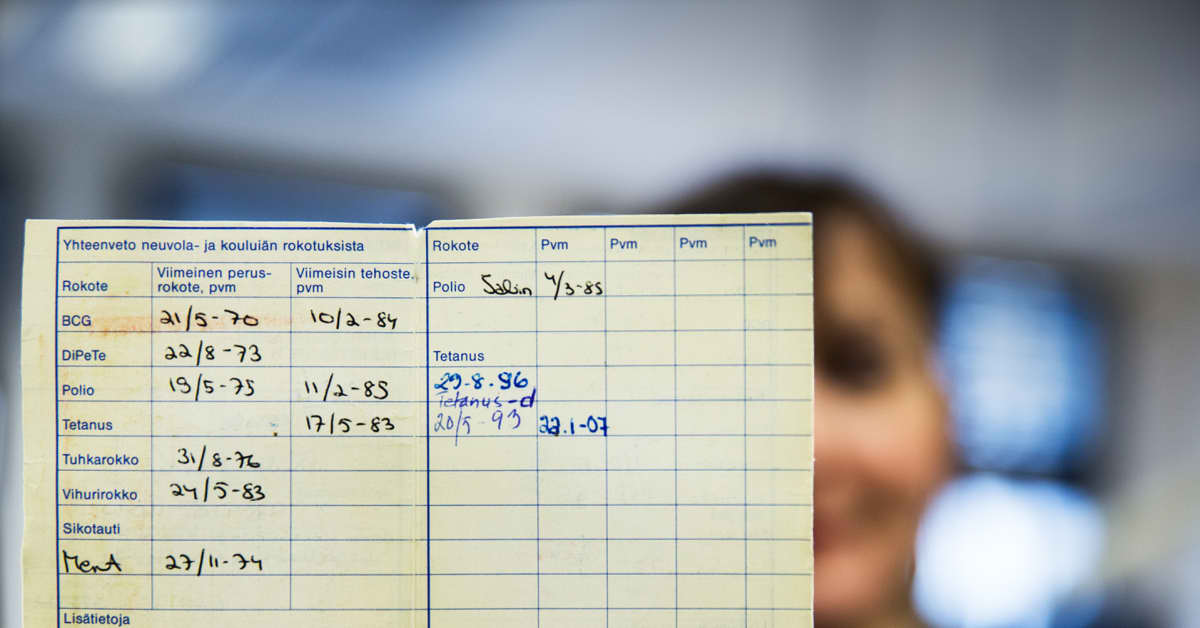 Yhteenveto neuvola- ja kouluiän rokotuksista
Rokote Viimeinen perus- Viimeisin tehoste,
rokote, pvm pvm
BCG 21/5-70 10/2-84
DiPeTe 22/8-73
Polio 19/5-75 11/2-85
Tetanus 17/5-83
Tuhkarokko 31/8-76
Vihurirokko 24/5-83
Sikotauti
MenA 27/11-74
Lisätietoja
Rokote Pvm Pvm Pvm Pvm
Polio Sabin 4/3-85
Tetanus
29.8.96
Tetanus-d
20/5-93 22.1-07